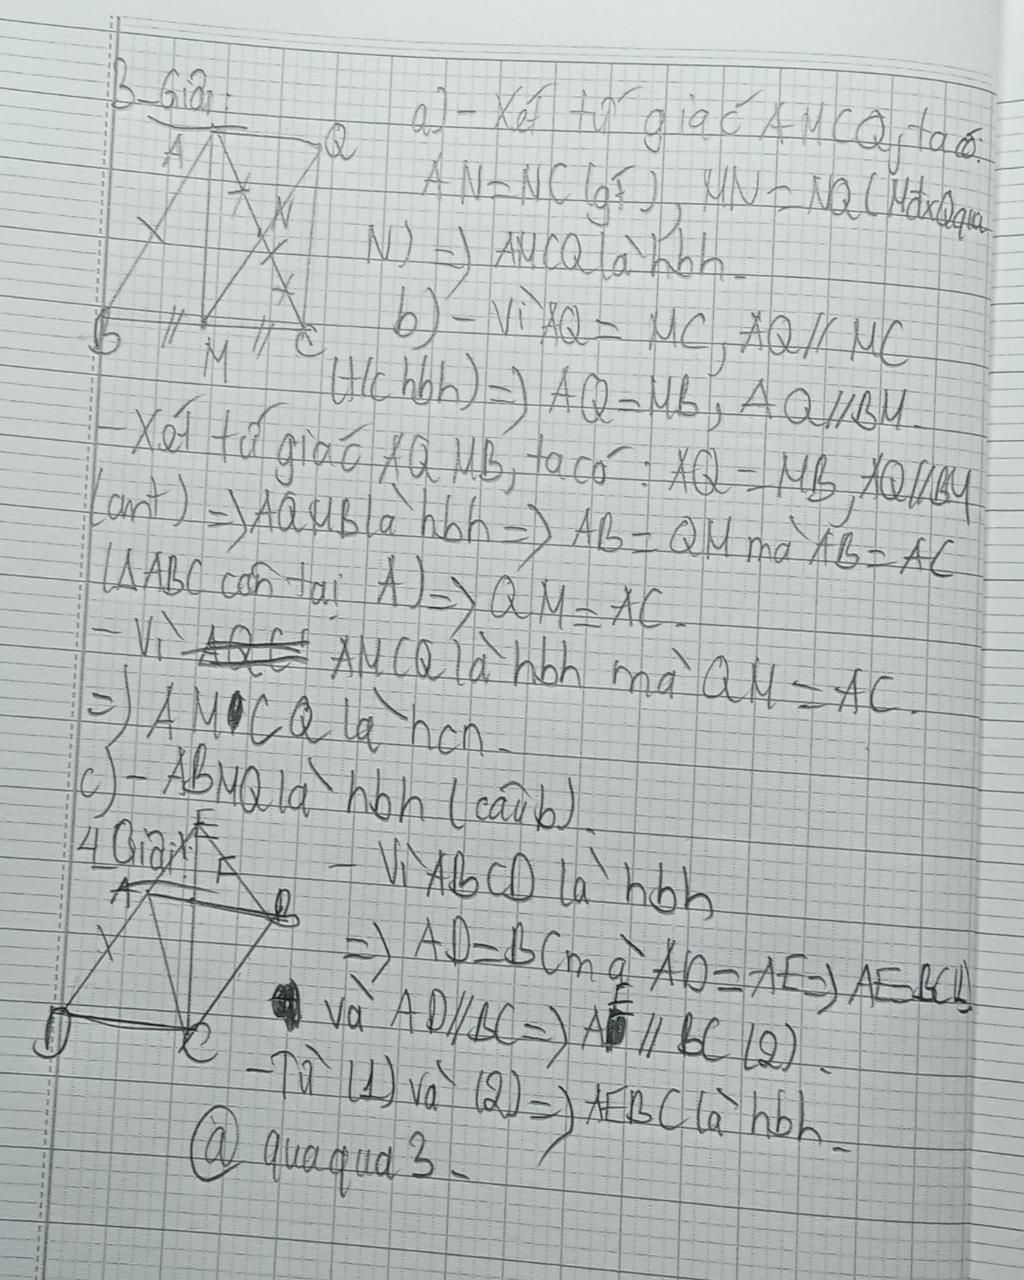 3-Giải:
A
Q
N
B
M
C
a) - Xét tứ giác AMCQ, ta có:
AN=NC (gt), MN=NQ (MđxQqua
N) => AMCQ là hbh-
b) - Vì AQ = MC, AQ // MC
(t/c hbh) => AQ=MB, AQ//BM-
- Xét tứ giác AQMB, ta có: AQ = MB, AQ//BM
(cmt) => AQMB là hbh => AB = QM mà AB = AC
(ΔABC cân tại A) => QM = AC.
- Vì AMCQ là hbh mà QM = AC.
=> AMCQ là hcn-
c) - ABMQ là hbh (câu b).
4 Giải
E
A
B
D
C
- Vì ABCD là hbh
=> AD=BC mà AD=AE => AE=BC(1)
và AD//BC => AE // BC (2).
- Từ (1) và (2) => AEBC là hbh-
@ quaqua3-